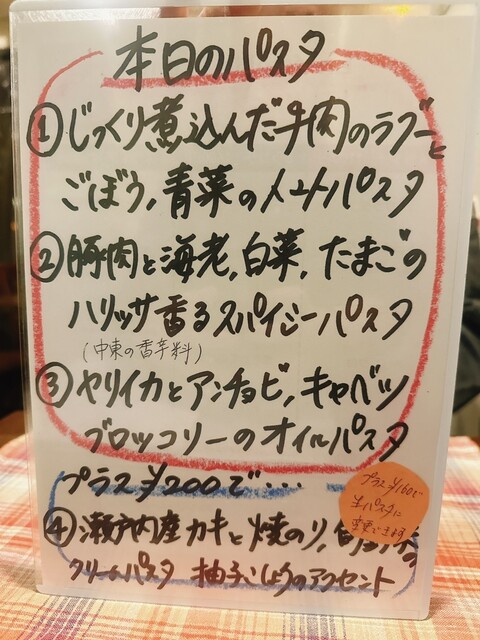 本日のパスタ
①じっくり煮込んだ牛肉のラグーと
ごぼう,青菜のトマトパスタ
②豚肉と海老,白菜,たまごの
ハリッサ香るスパイシーパスタ
(中東の香辛料)
③ヤリイカとアンチョビ,キャベツ
ブロッコリーのオイルパスタ
プラス¥200で・・・
④瀬戸内産カキと焼のり,
クリームパスタ 柚子こしょうのアクセント
プラス¥160で
生パスタに
変更できます